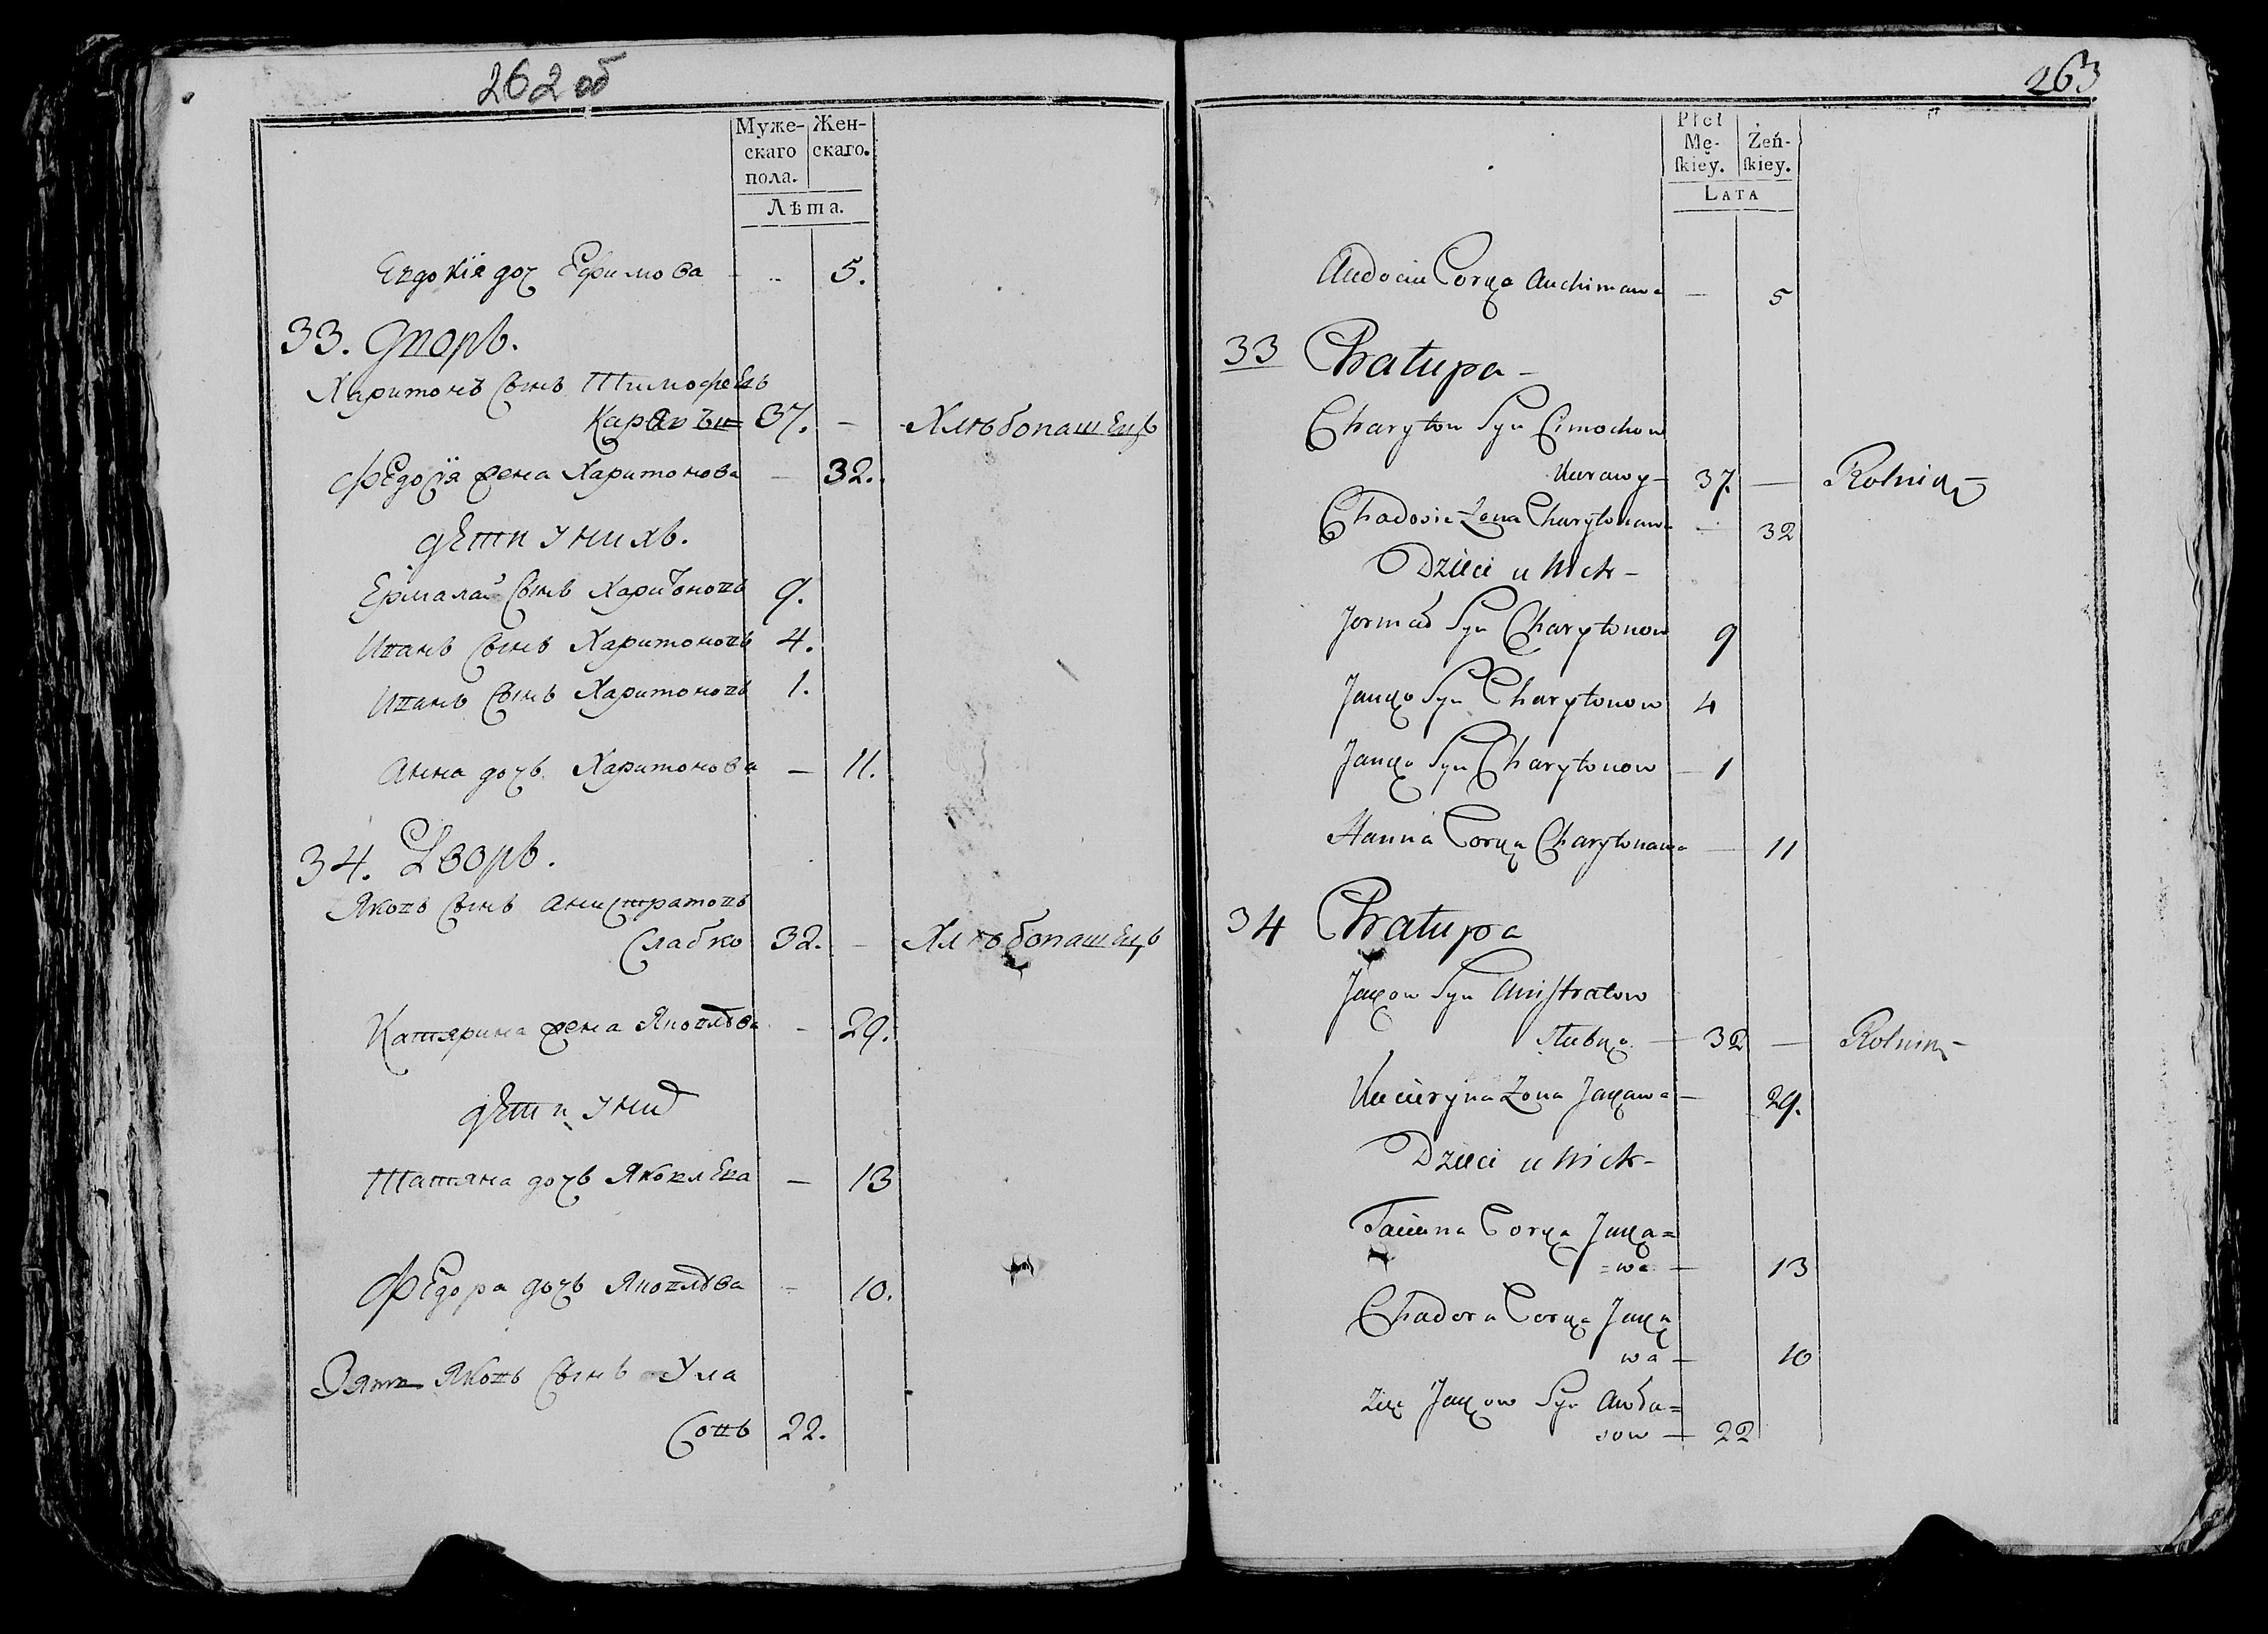 262 об
Муже-
скаго
пола.
Жен-
скаго.
Лѣта.
Евдокія доч Ефимова - 5.
33. Дворъ.
Харитонъ сынъ Тимофеевъ
37. - Хлѣбопашецъ
Федосія жена Харитонова - 32.
дети у нихъ.
Ермалай сынъ Харитоновъ 9.
Иванъ сынъ Харитоновъ 4.
Иванъ сынъ Харитоновъ 1.
Анна дочь Харитонова - 11.
34. Дворъ.
Яковъ сынъ Анистратовъ
Слабко 32. - Хлѣбопашецъ
Катярина жена Яковлѣва - 29.
дети у них
Татяна дочь Яковлева - 13
Федора дочь Яковлѣва - 10.
Зять Яковъ сынъ Ула
совъ 22.
263
Płci
Mę-
ſkiey.
Żeń-
ſkiey.
LATA
Audocia Corka Auchimawa - 5
33 Chatupa -
Charyton Syn Cimochow
37. - Rolnik
Chadosia Zona Charytonawa - 32
Dzieci u Nich -
Syn Charytonow 9
Janko Syn Charytonow 4
Janko Syn Charytonow - 1
Hanna Corka Charytonawa - 11
34 Chatupa
Jakow Syn Anistratow
Slabko - 32 - Rolnik
Kaciaryna Zona Jakawa - 29.
Dzieci u Nich -
Taciana Corka Jaka=
=wa - 13
Chadora Corka Jaka
wa - 10
Jakow Syn
sow - 22